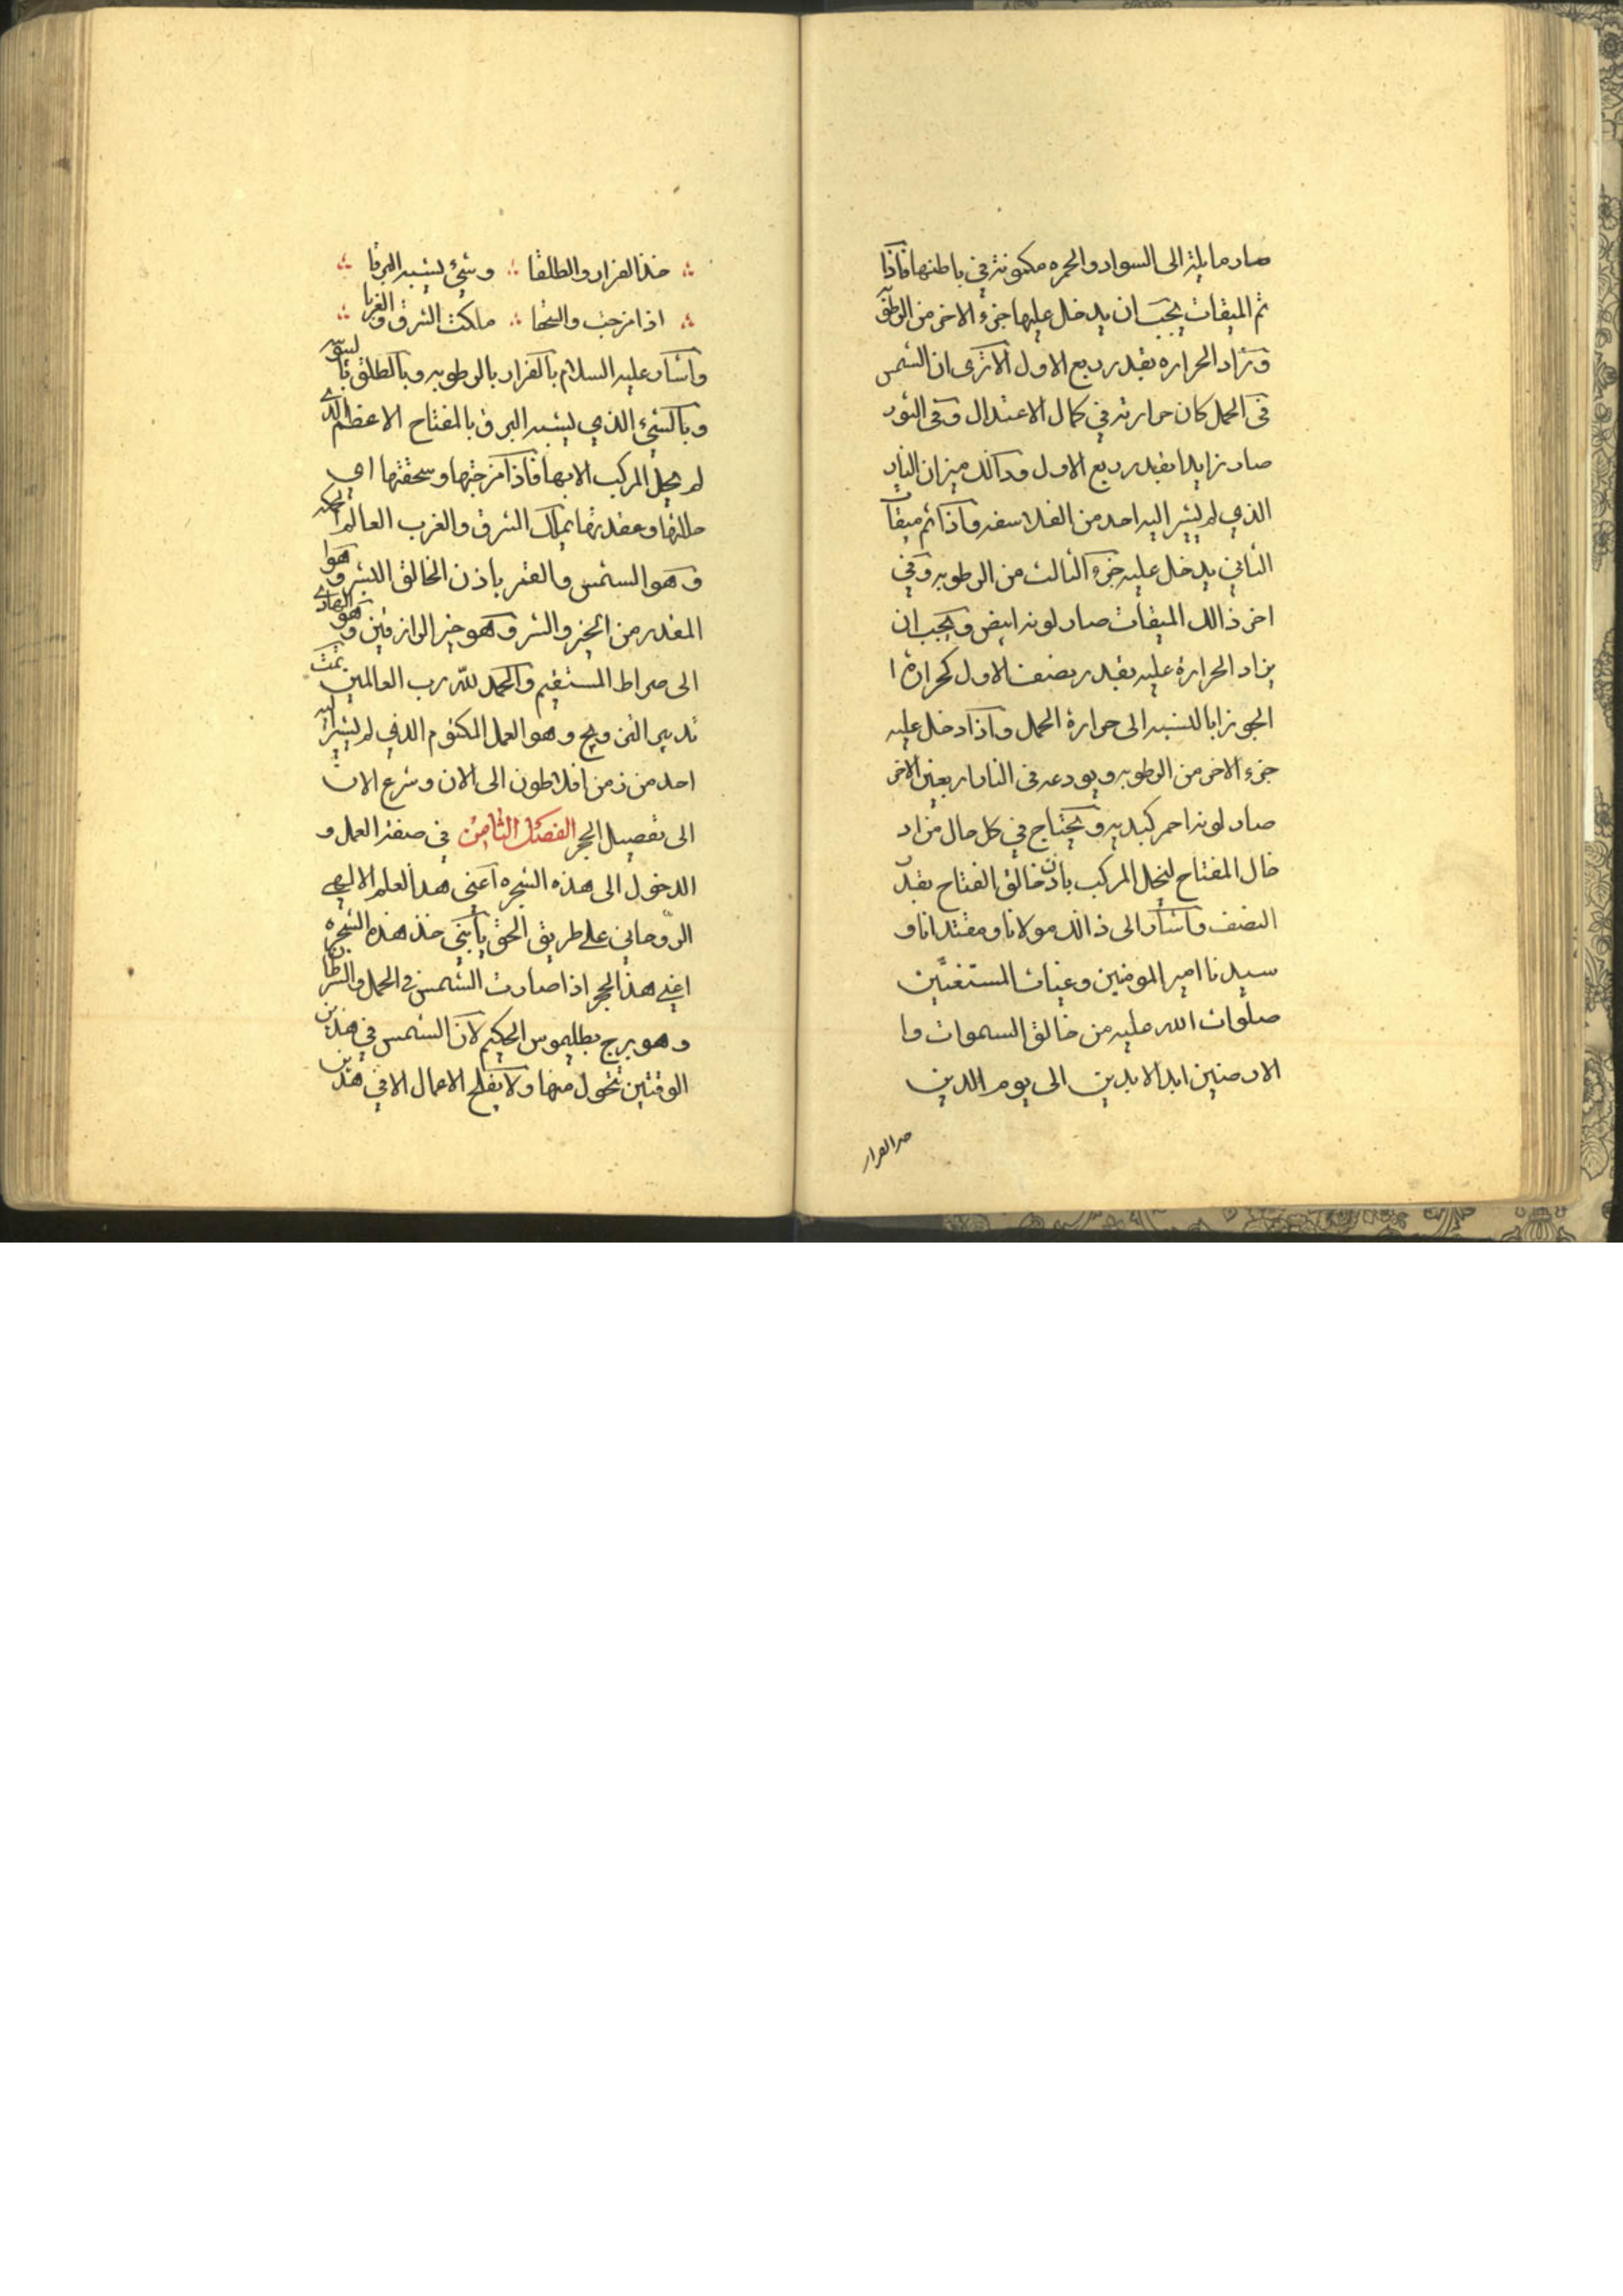 صار مايلة الى السواد والحمره مكنونة في باطنها فاذا
تم الميقات يجب ان يدخل عليها جزء الاخر من الرطوبة
وتزاد الحراره بقدر ربع الاول الا ترى ان الشمس
في الحمل كان حرارته في كمال الاعتدال وفي الثور
صار زايدا بقدر ربع الاول وذالك ميزان النار
الذي لم يشر اليه احد من الفلاسفه فاذا تم ميقات
الثاني يدخل عليه جزء الثالث من الرطوبه وفي
اخر ذالك الميقات صار لونه ابيض ويجب ان
يزاد الحرارة عليه بقدر نصف الاول كحرارة ا
الجوزا بالنسبه الى حرارة الحمل واذا دخل عليه
جزء الاخر من الرطوبه ويودعه في النار اربعين الاخر
صار لونه احمر كبديه ويحتاج في كل حال من اد
خال المفتاح لينحل المركب باذن خالق الفتاح بقدر
النصف واشار الى ذالك مولانا ومقتدانا و
سيدنا امير المومنين وغياث المستغيثين
صلوات الله عليه من خالق السموات وا
الارضين ابد الابدين الى يوم الدين
خذ الفرار والطلقا ؞ وشئ يشبه البرقا
اذا مزجت والسحقا ؞ ملكت الشرق والغربا
واشار عليه السلام بالفرار بالرطوبه وبالطلق باليبوسه
وبالشئ الذي يشبه البرق بالمفتاح الاعظم الذي
لم يحل المركب الا بها فاذا مزجتها وسحقتها اي
حللتها وعقدتها يملك الشرق والغرب العالم الحكمه
وهو الشمس والقمر باذن الخالق البشر وهو ا
المقدر من الخير والشر وهو خير الرازقين وهو الهادي
الى صراط المستقيم والحمد لله رب العالمين تمت
تدبير التزويج وهو العمل المكتوم الذي لم يشر اليه
احد من زمن افلاطون الى الان وشرع الان
الى تفصيل الحجر الفصل الثامن في صفة العمل و
الدخول الى هذه الشجره اعني هذا العلم الالهي
الروحاني على طريق الحق يا بني خذ هذه الشجره
اعني هذا الحجر اذا صارت الشمس في الحمل والسرطان
وهو برج بطليموس الحكيم لان الشمس في هذين
الوقتين تتحول منها ولا يفلح الاعمال الا في هذين